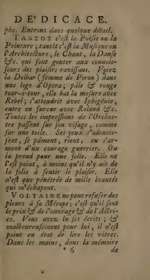 DE'DICACE.
phe. Entrons dans quelque détail.
TANTOT c'est la Poësie ou la
Peinture; tantôt c'est la Musique ou
l'Architecture, le Chant, la Danse
&c. qui font gouter aux connois-
seurs des plaisirs ravissans. Voyez
la Dolban (femme de Feron) dans
une loge d'Opera; pâle & rouge
tour-à-tour, elle bat la mesure avec
Rebel; s'attendrit avec Iphigénie,
entre en fureur avec Roland &c.
Toutes les impressions de l'Orches-
tre passent sur son visage, comme
sur une toile. Ses yeux s'adoucis-
sent, se pâment, rient, ou s'ar-
ment d'un courage guerrier. On
la prend pour une folle. Elle ne
l'est point, à moins qu'il n'y ait de
la folie à sentir le plaisir. Elle
n'est que pénétrée de mille beautés
qui m'échapent.
VOLTAIRE ne peut refuser des
pleurs à sa Mérope; c'est qu'il sent
le prix & de l'ouvrage & de l'Actri-
ce. Vous avez lu ses écrits; &
malheureusement pour lui, il n'est
point en état de lire les vôtres.
Dans les mains, dans la mémoire
de